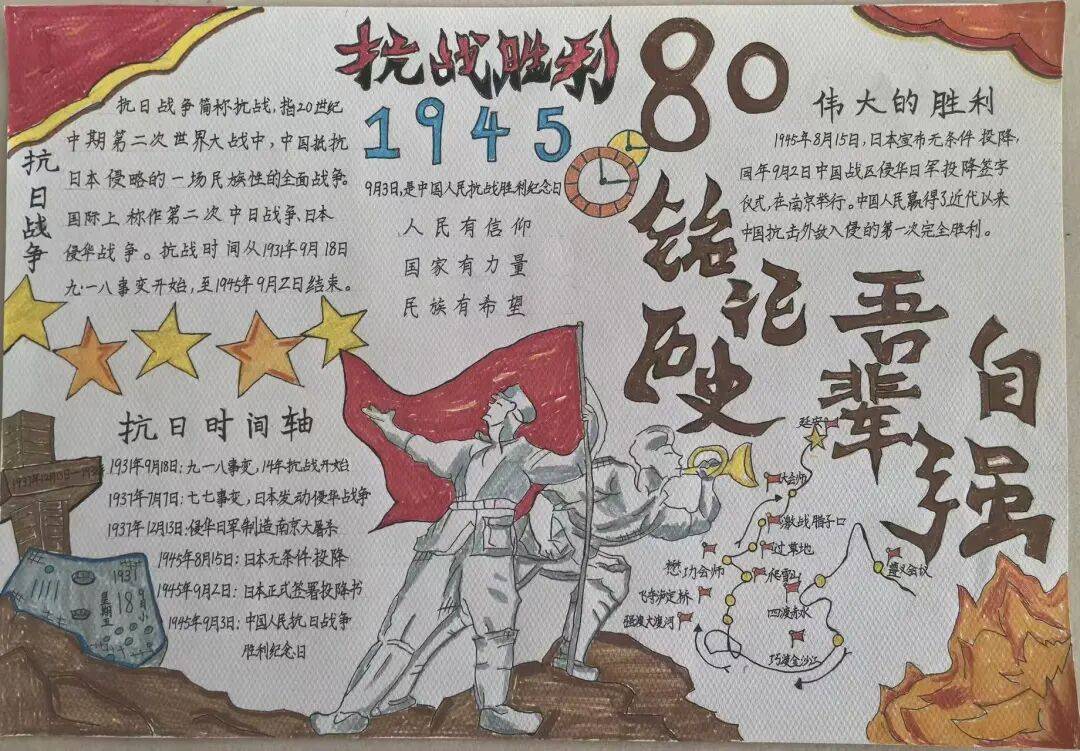 抗战胜利
80
1945
9月3日,是中国人民抗战胜利纪念日
人民有信仰
国家有力量
民族有希望
抗日战争
抗日战争简称抗战,指20世纪
中期第二次世界大战中,中国抵抗
日本侵略的一场民族性的全面战争。
国际上称作第二次中日战争、日本
侵华战争。抗战时间从1931年9月18日
九·一八事变开始,至1945年9月2日结束。
伟大的胜利
1945年8月15日,日本宣布无条件投降,
同年9月2日中国战区侵华日军投降签字
仪式,在南京举行。中国人民赢得了近代以来
中国抗击外敌入侵的第一次完全胜利。
铭记
历史
吾辈
自强
抗日时间轴
1931年9月18日:九一八事变,14年抗战开始
1937年7月7日:七七事变,日本发动侵华战争
1937年12月13日:侵华日军制造南京大屠杀
1945年8月15日:日本无条件投降
1945年9月2日:日本正式签署投降书
1945年9月3日:中国人民抗日战争
胜利纪念日
1937年12月13日
1931
9月小
18
星期五
延安
大会师
激战腊子口
过草地
懋功会师
爬雪山
遵义会议
飞夺泸定桥
四渡赤水
强渡大渡河
巧渡金沙江